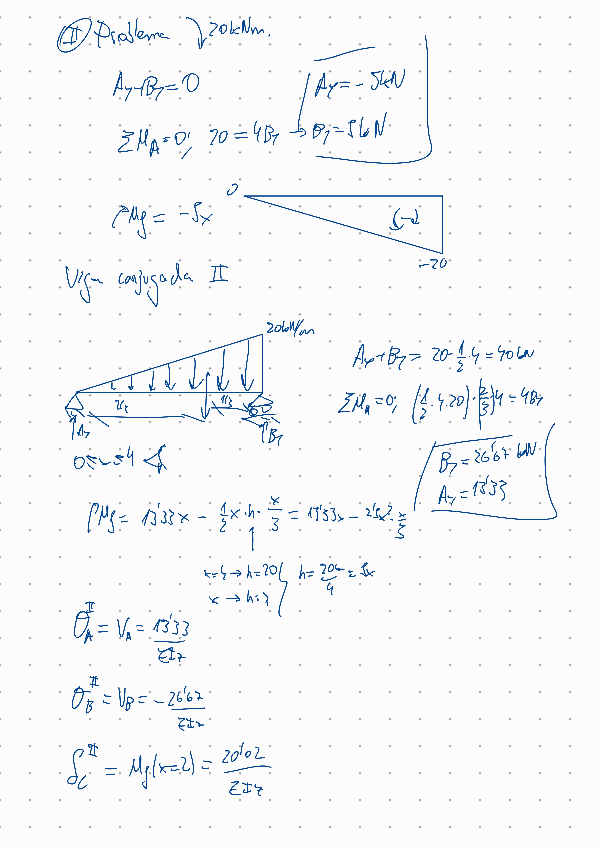 II Problema 20kNm.
Ay+By=0
Ay=-5kN
ΣMA=0; 20=4By → By=5kN
Mg = -5x
0
-20
Viga conjugada II
20kN/m
Ay+By = 20·1/2·4=40kN
ΣMA=0; (1/2·4·20)·(2/3)4=4By
Ay
By
By=26'67 kN
Ay=13'33
0≤x≤4
Mg= 13'33x - 1/2x·h·x/3 = 13'33x - 2'5x²·x/3
x=4 → h=20
x → h=?
h=20x/4=5x
θA^II = VA = 13'33/EIz
θB^II = VB = -26'67/EIz
δC^II = Mg(x=2) = 20'02/EIz